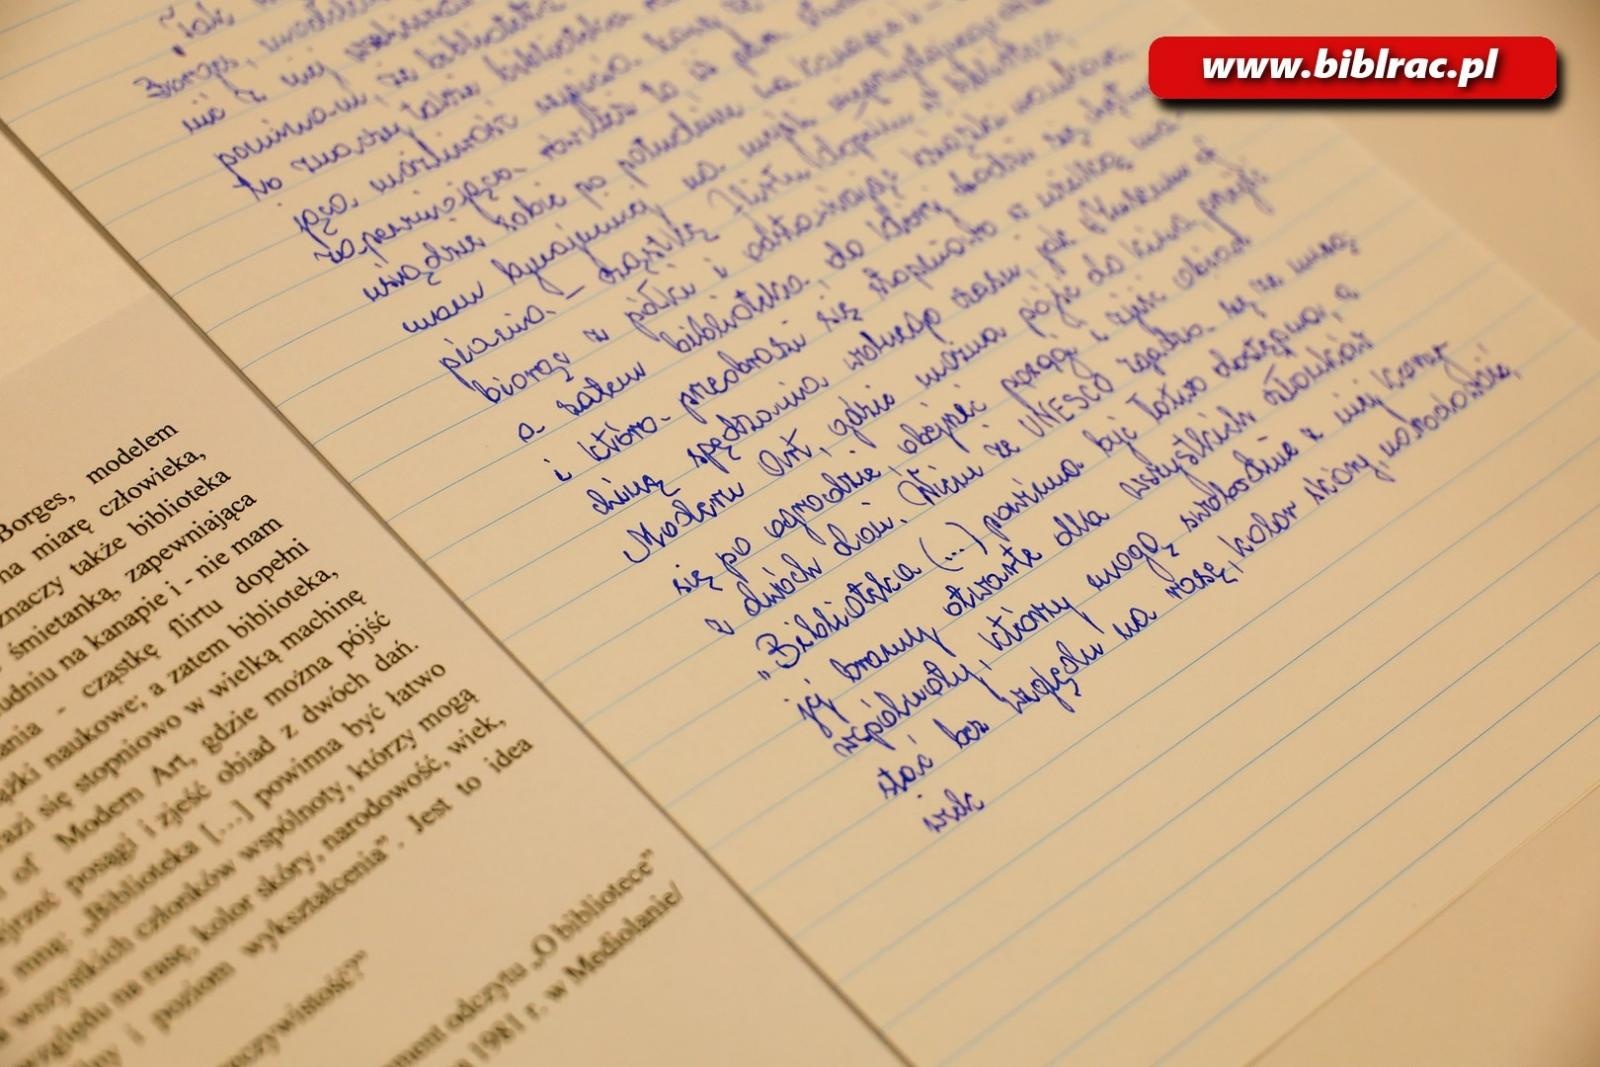 www.biblrac.pl
Borges, modelem
na miarę człowieka,
znaczy także biblioteka
śmietanką, zapewniająca
udniu na kanapie i - nie mam
ania - cząstkę flirtu dopełni
ążki naukowe; a zatem biblioteka,
razi się stopniowo w wielką machinę
of Modern Art, gdzie można pójść
ejrzeć posągi i zjeść obiad z dwóch dań.
mną: „Biblioteka [...] powinna być łatwo
wszystkich członków wspólnoty, którzy mogą
względu na rasę, kolor skóry, narodowość, wiek,
i poziom wykształcenia”. Jest to idea
rzeczywistość?”
ment odczytu „O bibliotece”
1981 r. w Mediolanie/
Borges,
nie z niej
że biblioteka
to znaczy także biblioteka
możliwość wypicia kawy
zapewniająca również to, iż para
usiądzie sobie po południu na kanapie i -
mam bynajmniej na myśli
- cząstkę flirtu dopełni w bibliotece,
biorąc z półki i odstawiając książki naukowe.
a zatem biblioteka, do której chodzi się chętnie
i która przeobrazi się stopniowo w wielką ma-
chinę spędzania wolnego czasu, jak Museum of
Modern Art, gdzie można pójść do kina, przejść
się po ogrodzie, obejrzeć posągi i zjeść obiad
z dwóch dań. Wiem że UNESCO zgadza się ze mną:
„Biblioteka (...) powinna być łatwo dostępna, a
jej bramy otwarte dla wszystkich członków
wspólnoty, którzy mogą swobodnie z niej korzy
stać bez względu na rasę, kolor skóry, narodowość,
wiek